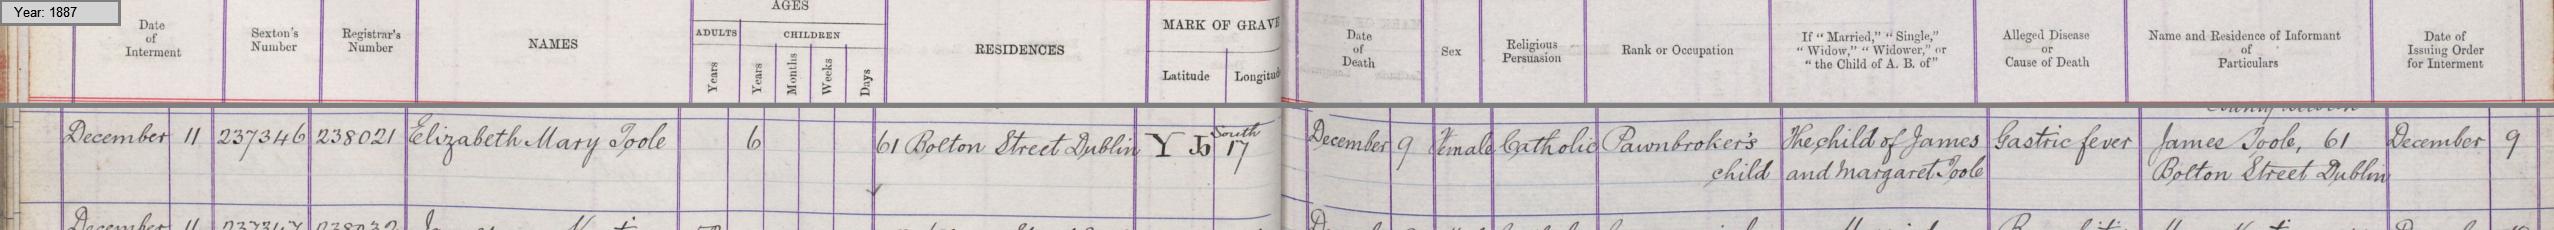 Year: 1887
Date of Interment
Sexton's Number
Registrar's Number
NAMES
AGES
ADULTS
CHILDREN
Years
Years
Months
Weeks
Days
RESIDENCES
MARK OF GRAVE
Latitude
Longitud
Date of Death
Sex
Religious Persuasion
Rank or Occupation
If "Married," "Single,"
"Widow," "Widower," or
"the Child of A. B. of"
Alleged Disease
or
Cause of Death
Name and Residence of Informant
of
Particulars
Date of
Issuing Order
for Interment
December 11 237346 238021 Elizabeth Mary Toole 6 61 Bolton Street Dublin Y Jb South 17 December 9 Female Catholic Pawnbroker's The child of James Gastric fever James Toole, 61 December 9
child and Margaret Toole Bolton Street Dublin
December 11 237347 238032